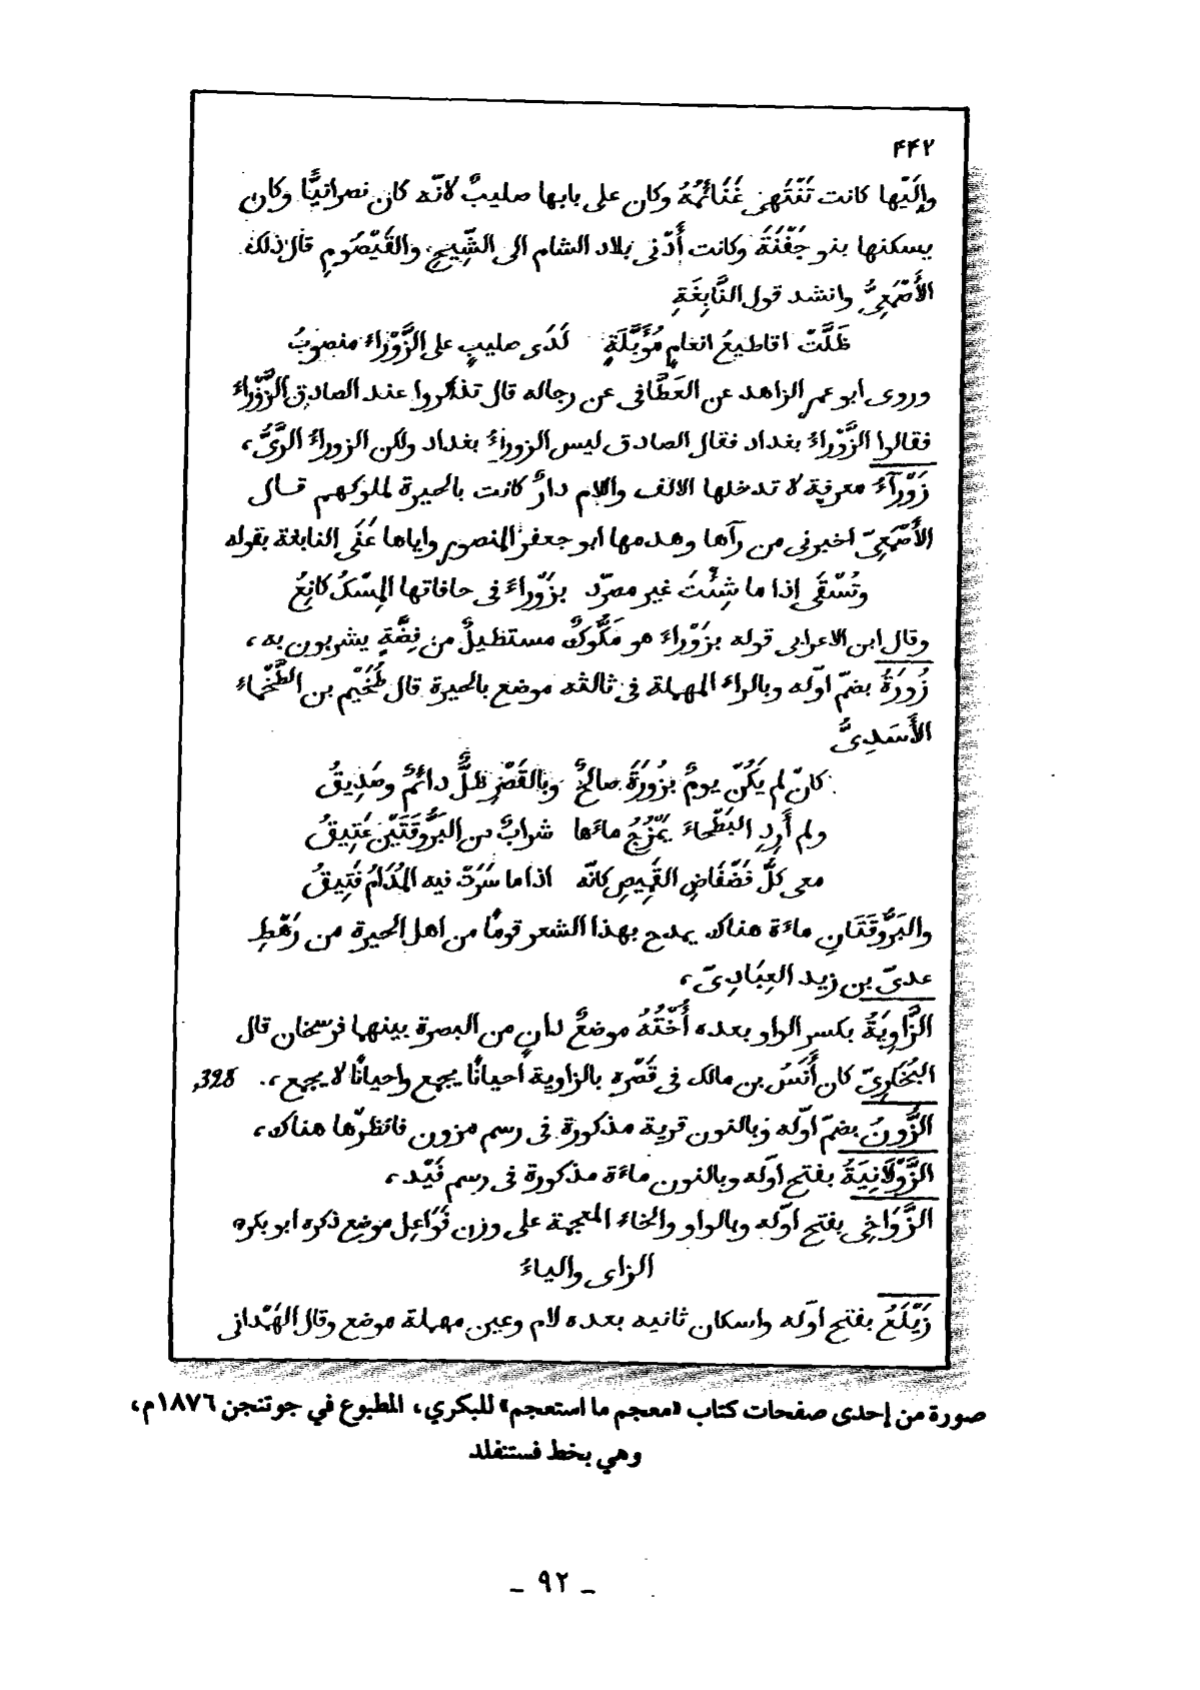 ۴۴۲
وإلَيْها كانت تَنْتَهِى غَنَائِمُهُ وكان على بابها صليبٌ لانّه كان نصرانيًّا وكان
يسكنها بنو جَفْنَةَ وكانت أَدْنى بلاد الشام الى الشِّيحِ والقَيْصُومِ قال ذلك
الأَصْمَعِيُّ وانشد قول النَّابِغَةِ
ظَلَّتْ اقاطيعُ انعامٍ مُؤَبَّلَةٍ لَدَى صليبٍ على الزَّوْرَاءِ منصوبُ
وروى ابو عمر الزاهد عن العَطَّافى عن رجاله قال تذاكروا عند الصادق الزَّوْراءَ
فقالوا الزَّوْراءُ بغداد فقال الصادق ليس الزوراءُ بغداد ولكن الزوراءُ الرَّىُّ،
زَوْرَآءُ معرفة لا تدخلها الالف واللام دارٌ كانت بالحيرة لملوكهم قال
الأَصْمَعِىّ اخبرنى من رآها وهدمها ابو جعفر المنصور واياها عَنَى النابغة بقوله
وتُسْقَى إذا ما شِئْتَ غير مصرّد بزَوْراءَ فى حافاتها المِسْكُ كانِعُ
وقال ابن الاعرابى قوله بزَوْراءَ هو مَكُّوكٌ مستطيلٌ من فِضَّةٍ يشربون به،
زُورَةُ بضمّ اوّله وبالراء المهملة فى ثالثه موضع بالحيرة قال طُخَيْم بن الطَّخْماءِ
الأَسَدِىُّ
كانْ لم يَكُنْ يومٌ بزُورَةَ صالحٌ وبالقَصْرِ ظلٌّ دائمٌ وصَدِيقُ
ولم أَرِدِ البَطْحاءَ يَمْزُجُ ماءَها شرابٌ من البَرُّوقَتَيْنِ عَتِيقُ
معى كلُّ فَضْفَاضِ القَمِيصِ كانّه اذا ما سَرَتْ فيه المُدَامُ فَتِيقُ
والبَرُّوقَتَانِ ماءَة هناك يمدح بهذا الشعر قومًا من اهل الحيرة من رَهْطِ
عدىّ بن زيد العِبَادِىّ،
الزَّاوِيَةُ بكسر الواو بعده أُخْتُهُ موضعٌ دانٍ من البصرة بينهما فرسخان قال
البُخَارِىّ كان أَنَسُ بن مالك فى قَصْره بالزاوية احيانًا يجمع واحيانًا لا يجمع، 328,
الزُّونُ بضمّ اوّله وبالنون قرية مذكورة فى رسم مزون فانظرْها هناك،
الزَّوْلَانِيَةُ بفتح اوّله وبالنون ماءَة مذكورة فى رسم فَيْد،
الزَّوَاخِى بفتح اوّله وبالواو والخاء المعجمة على وزن فَوَاعِل موضع ذكره ابو بكره
الزاى والياءُ
زَيْلَعُ بفتح اوّله واسكان ثانيه بعده لام وعين مهملة موضع وقال الهَمْدانى
صورة من إحدى صفحات كتاب «معجم ما استعجم» للبكري، المطبوع في جوتنجن ١٨٧٦م،
وهي بخط فستنفلد
ـ ٩٢ ـ